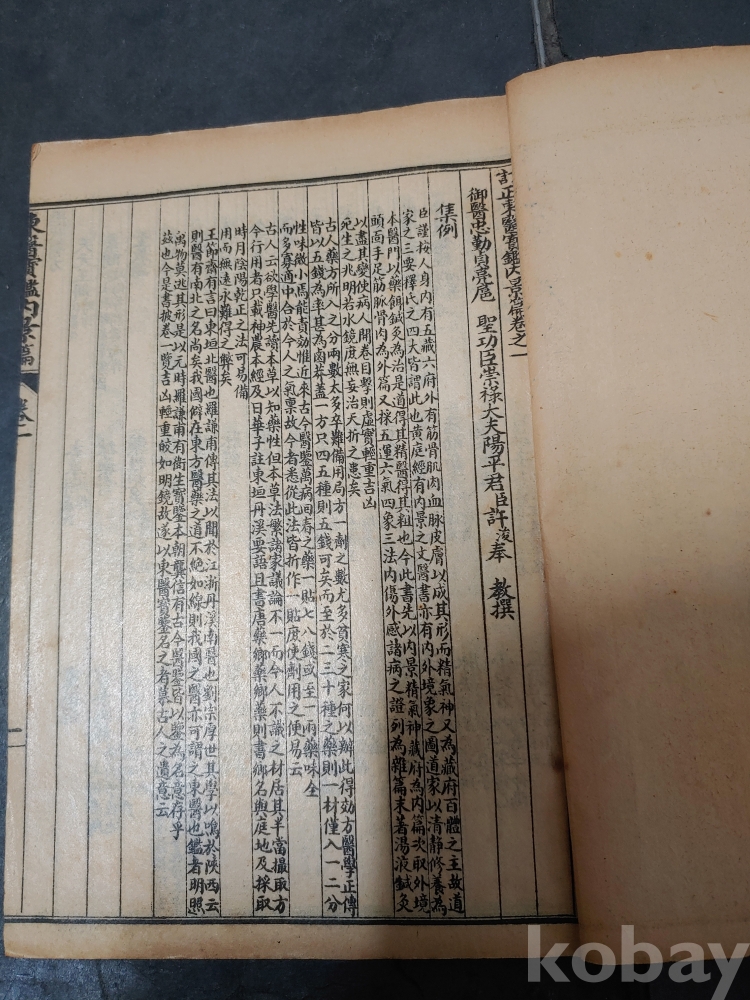 訂正東醫寶鑑內景篇卷之一
御醫忠勤貞亮扈 聖功臣崇祿大夫陽平君臣許浚奉 教撰
集例
臣謹按人身內有五藏六府外有筋骨肌肉血脉皮膚以成其形而精氣神又為藏府百體之主故道
家之三要釋氏之四大皆謂此也黃庭經有內景之文醫書亦有內外境象之圖道家以清靜修養為
本醫門以藥餌鍼灸為治是道得其精醫得其粗也今此書先以內景精氣神藏府為內篇次取外境
頭面手足筋脉骨肉為外篇又採五運六氣四象三法內傷外感諸病之證列為雜篇末著湯液鍼灸
以盡其變使病人開卷目擊則虛實輕重吉凶
死生之兆明若水鏡庶無妄治夭折之患矣
古人藥方所入之分兩數太多卒難備用局方一劑之數尤多貧寒之家何以辦此得効方醫學正傳
皆以五錢為率甚為鹵莽盖一方只四五種則五錢可矣而至於二三十種之藥則一材僅入一二分
性味微小焉能責効惟近來古今醫鑒萬病回春之藥一貼七八錢或至一兩藥味全
而多寡適中合於今人之氣稟故今者悉從此法皆折作一貼庶使劑用之便易云
古人云欲學醫先讀本草以知藥性但本草法繁諸家議論不一而今人不識之材居其半當撮取方
今行用者只載神農本經及日華子註東垣丹溪要語且書唐藥鄉藥鄉藥則書鄉名與庭地及採取
時月陰陽乾正之法可易備
用而無遠永難得之弊矣
王節齋有言曰東垣北醫也羅謙甫傳其法以聞於江浙丹溪南醫也劉宗厚世其學以鳴於陝西云
則醫有南北之名尚矣我國僻在東方醫藥之道不絕如線則我國之醫亦可謂之東醫也鑑者明照
萬物莫逃其形是以元時羅謙甫有衛生寶鑒本朝龔信有古今醫鑒皆以鑒為名意存乎
玆也今是書披卷一覽吉凶輕重皎如明鏡故遂以東醫寶鑒名之者慕古人之遺意云
東醫寶鑑內景篇 卷一
一
kobay